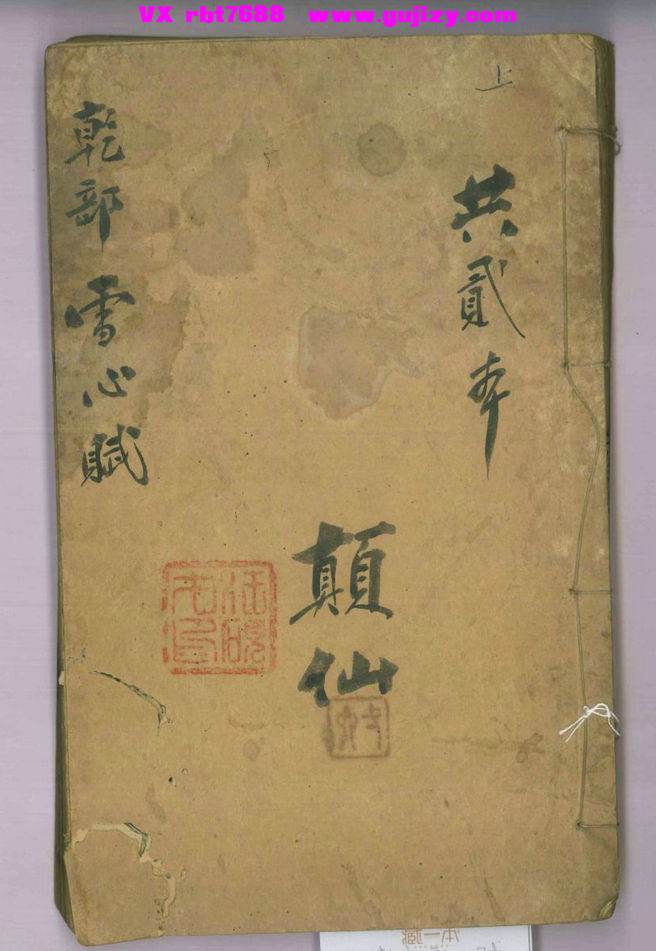 VX rbt7688 www.gujlzy.com
上
共貳本
顛仙
乾部 雪心賦